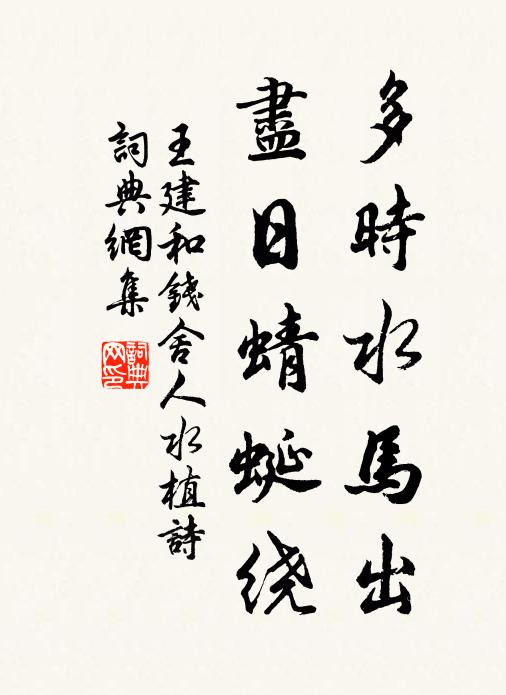 多時水馬出
盡日蜻蜒绕
王建和錢舍人水植詩
詞典網集
詞典網印